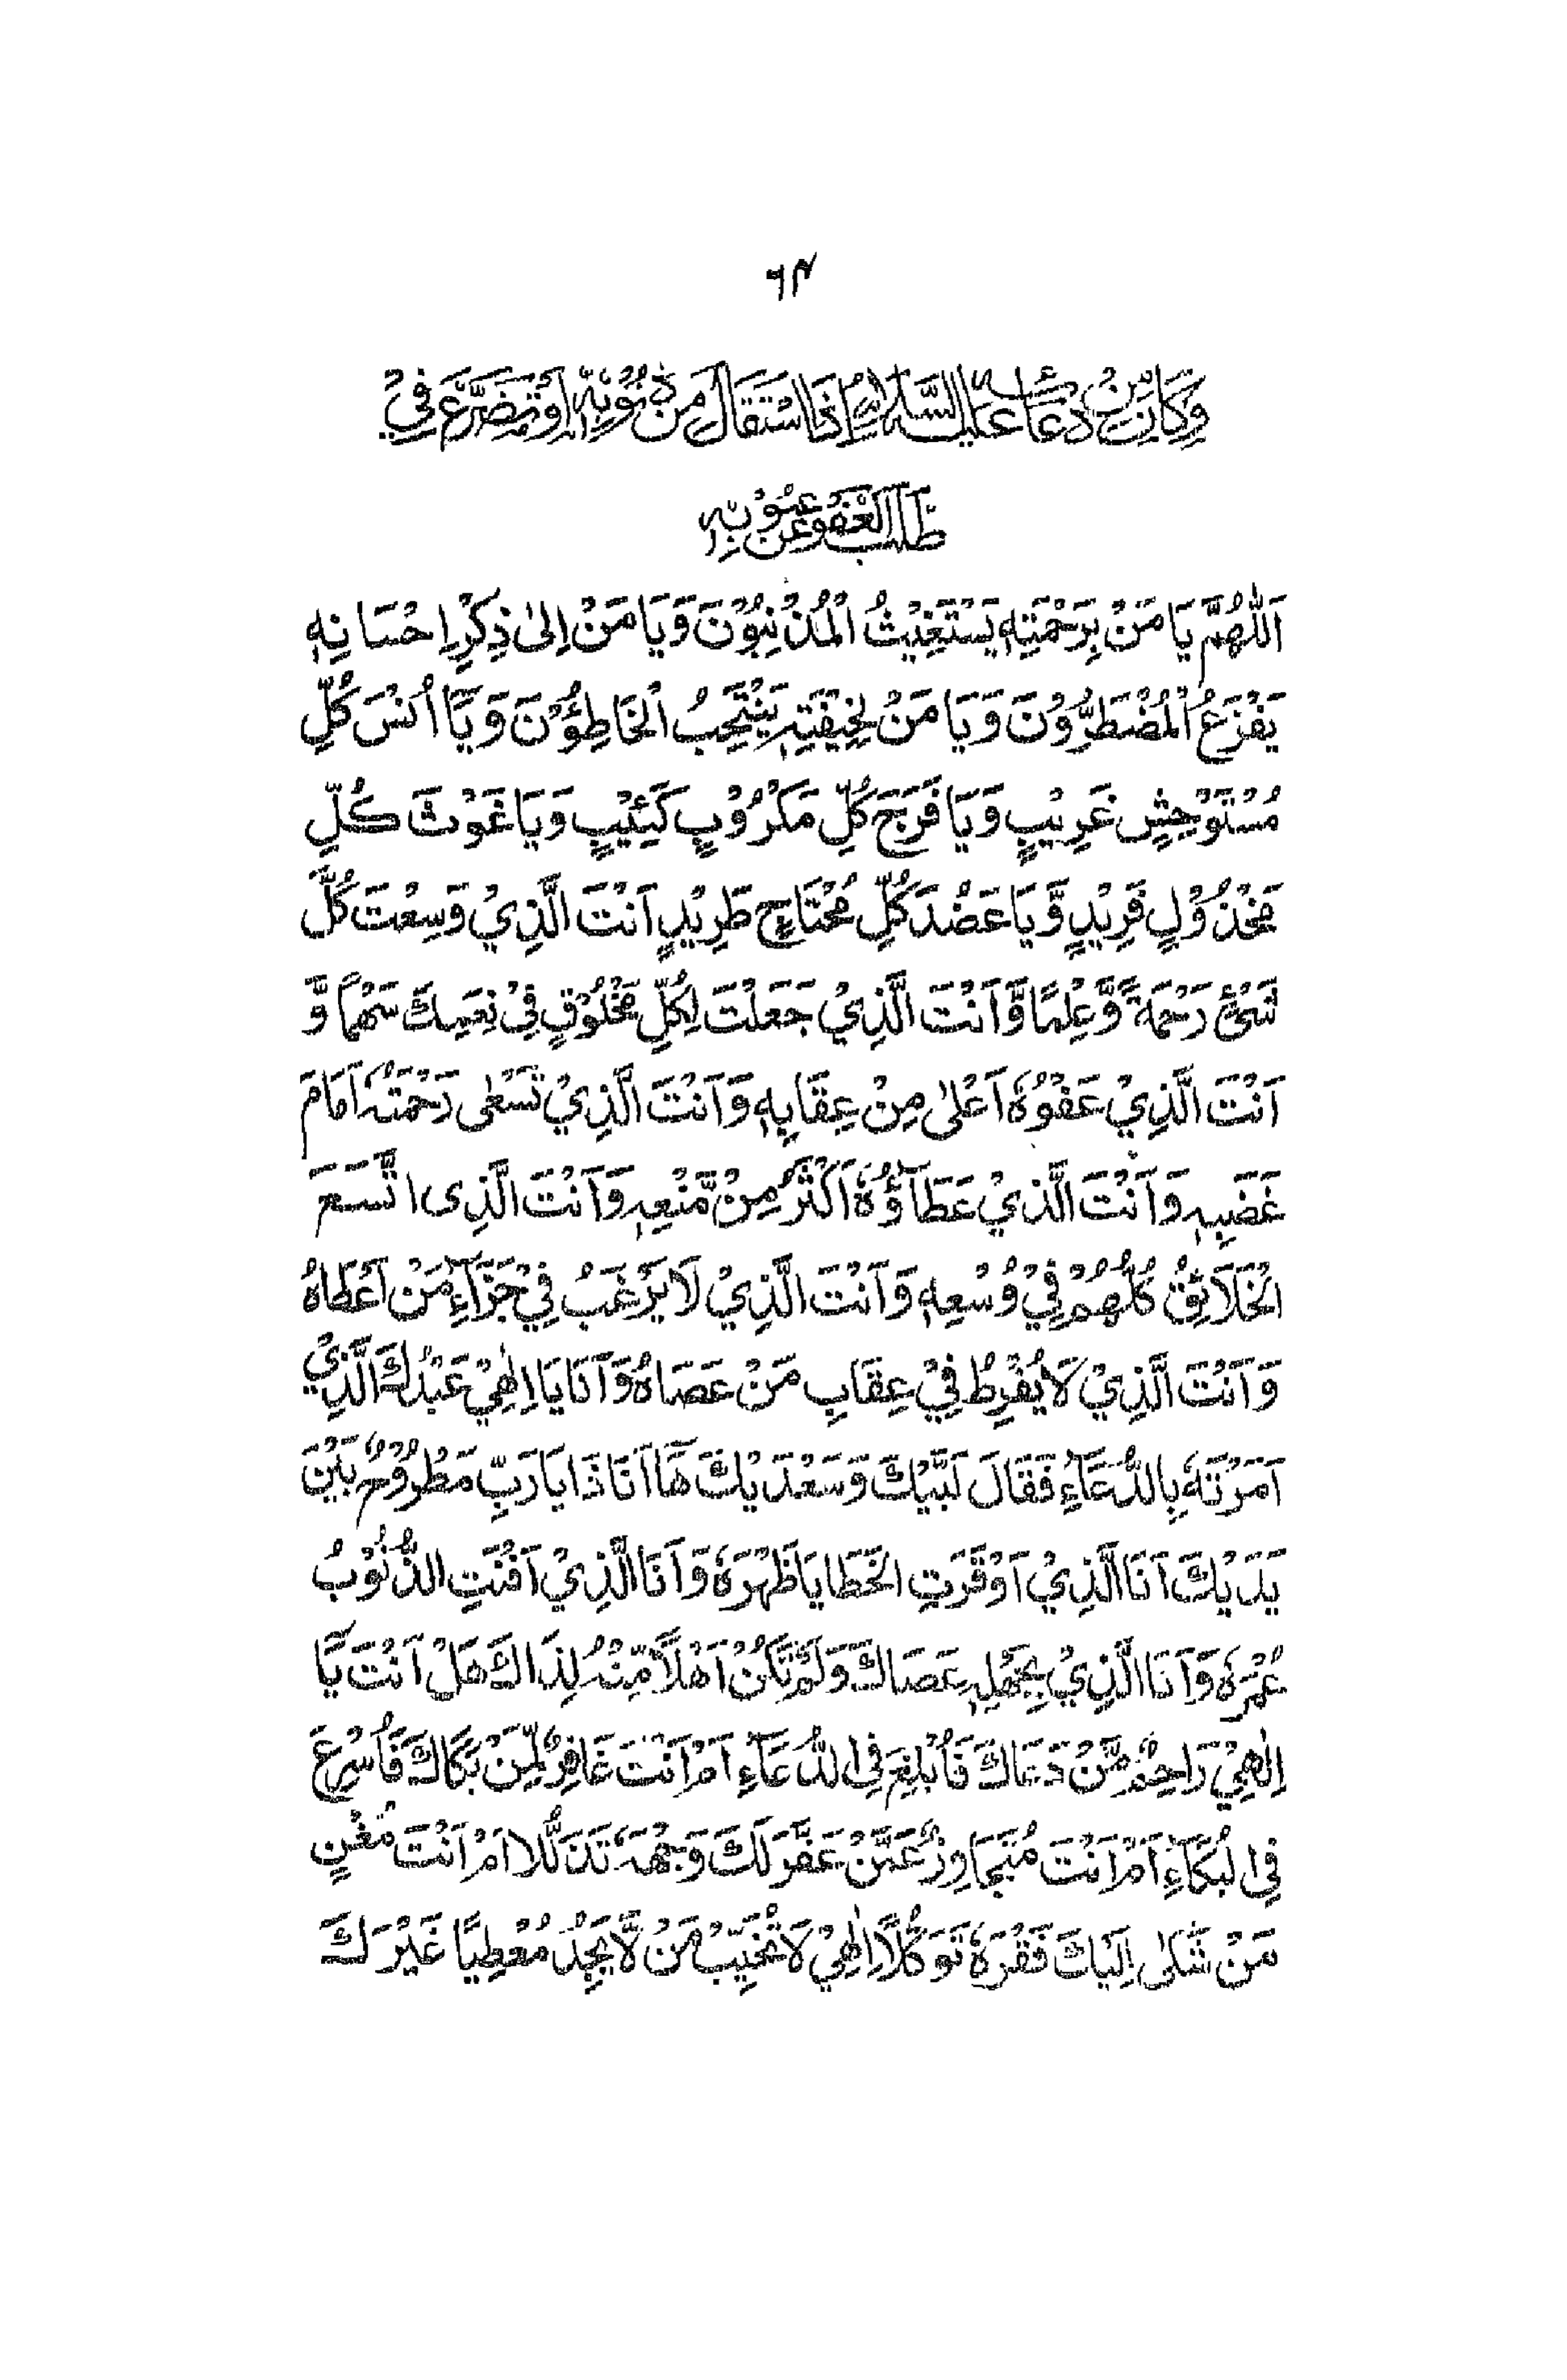 ٦٣
وَكَانَ مِنْ دُعَائِهِ عَلَيْهِ السَّلَامُ إِذَا اسْتَقَالَ مِنْ ذُنُوْبِهٖ اَوْ تَضَرَّعَ فِيْ
طَلَبِ الْعَفْوِ عَنْ عُيُوْبِهٖ
اَللّٰهُمَّ يَا مَنْ بِرَحْمَتِهٖ يَسْتَغِيْثُ الْمُذْنِبُوْنَ وَيَا مَنْ اِلىٰ ذِكْرِ اِحْسَانِهٖ
يَفْزَعُ الْمُضْطَرُّوْنَ وَيَا مَنْ لِخِيْفَتِهٖ يَنْتَحِبُ الْخَاطِئُوْنَ وَيَا اُنْسَ كُلِّ
مُسْتَوْحِشٍ غَرِيْبٍ وَيَا فَرَجَ كُلِّ مَكْرُوْبٍ كَئِيْبٍ وَيَا غَوْثَ كُلِّ
مَخْذُوْلٍ فَرِيْدٍ وَّيَا عَضُدَ كُلِّ مُحْتَاجٍ طَرِيْدٍ اَنْتَ الَّذِيْ وَسِعْتَ كُلَّ
شَيْءٍ رَحْمَةً وَّعِلْمًا وَّاَنْتَ الَّذِيْ جَعَلْتَ لِكُلِّ مَخْلُوْقٍ فِيْ نِعَمِكَ سَهْمًا وَّ
اَنْتَ الَّذِيْ عَفْوُهٗ اَعْلىٰ مِنْ عِقَابِهٖ وَاَنْتَ الَّذِيْ تَسْعٰى رَحْمَتُهٗ اَمَامَ
غَضَبِهٖ وَاَنْتَ الَّذِيْ عَطَآؤُهٗ اَكْثَرُ مِنْ مَّنْعِهٖ وَاَنْتَ الَّذِى اتَّسَعَ
الْخَلَائِقُ كُلُّهُمْ فِيْ وُسْعِهٖ وَاَنْتَ الَّذِيْ لَا يَرْغَبُ فِيْ جَزَآءِ مَنْ اَعْطَاهُ
وَاَنْتَ الَّذِيْ لَا يُفْرِطُ فِيْ عِقَابِ مَنْ عَصَاهُ وَاَنَا يَا اِلٰهِيْ عَبْدُكَ الَّذِيْ
اَمَرْتَهٗ بِالدُّعَآءِ فَقَالَ لَبَّيْكَ وَسَعْدَيْكَ هَا اَنَا ذَا يَا رَبِّ مَطْرُوْحٌ بَيْنَ
يَدَيْكَ اَنَا الَّذِيْ اَوْقَرَتِ الْخَطَايَا ظَهْرَهٗ وَاَنَا الَّذِيْ اَفْنَتِ الذُّنُوْبُ
عُمْرَهٗ وَاَنَا الَّذِيْ بِجَهْلِهٖ عَصَاكَ وَلَمْ تَكُنْ اَهْلًا مِّنْهُ لِذَاكَ هَلْ اَنْتَ يَا
اِلٰهِيْ رَاحِمٌ مَّنْ دَعَاكَ فَاُبْلِغَ فِى الدُّعَآءِ اَمْ اَنْتَ غَافِرٌ لِّمَنْ بَكَاكَ فَاُسْرِعَ
فِى الْبُكَآءِ اَمْ اَنْتَ مُتَجَاوِزٌ عَمَّنْ عَفَّرَ لَكَ وَجْهَهٗ تَذَلُّلًا اَمْ اَنْتَ مُغْنٍ
مَنْ شَكىٰ اِلَيْكَ فَقْرَهٗ تَوَكُّلًا اِلٰهِيْ لَا تُخَيِّبْ مَنْ لَّا يَجِدُ مُعْطِيًا غَيْرَكَ